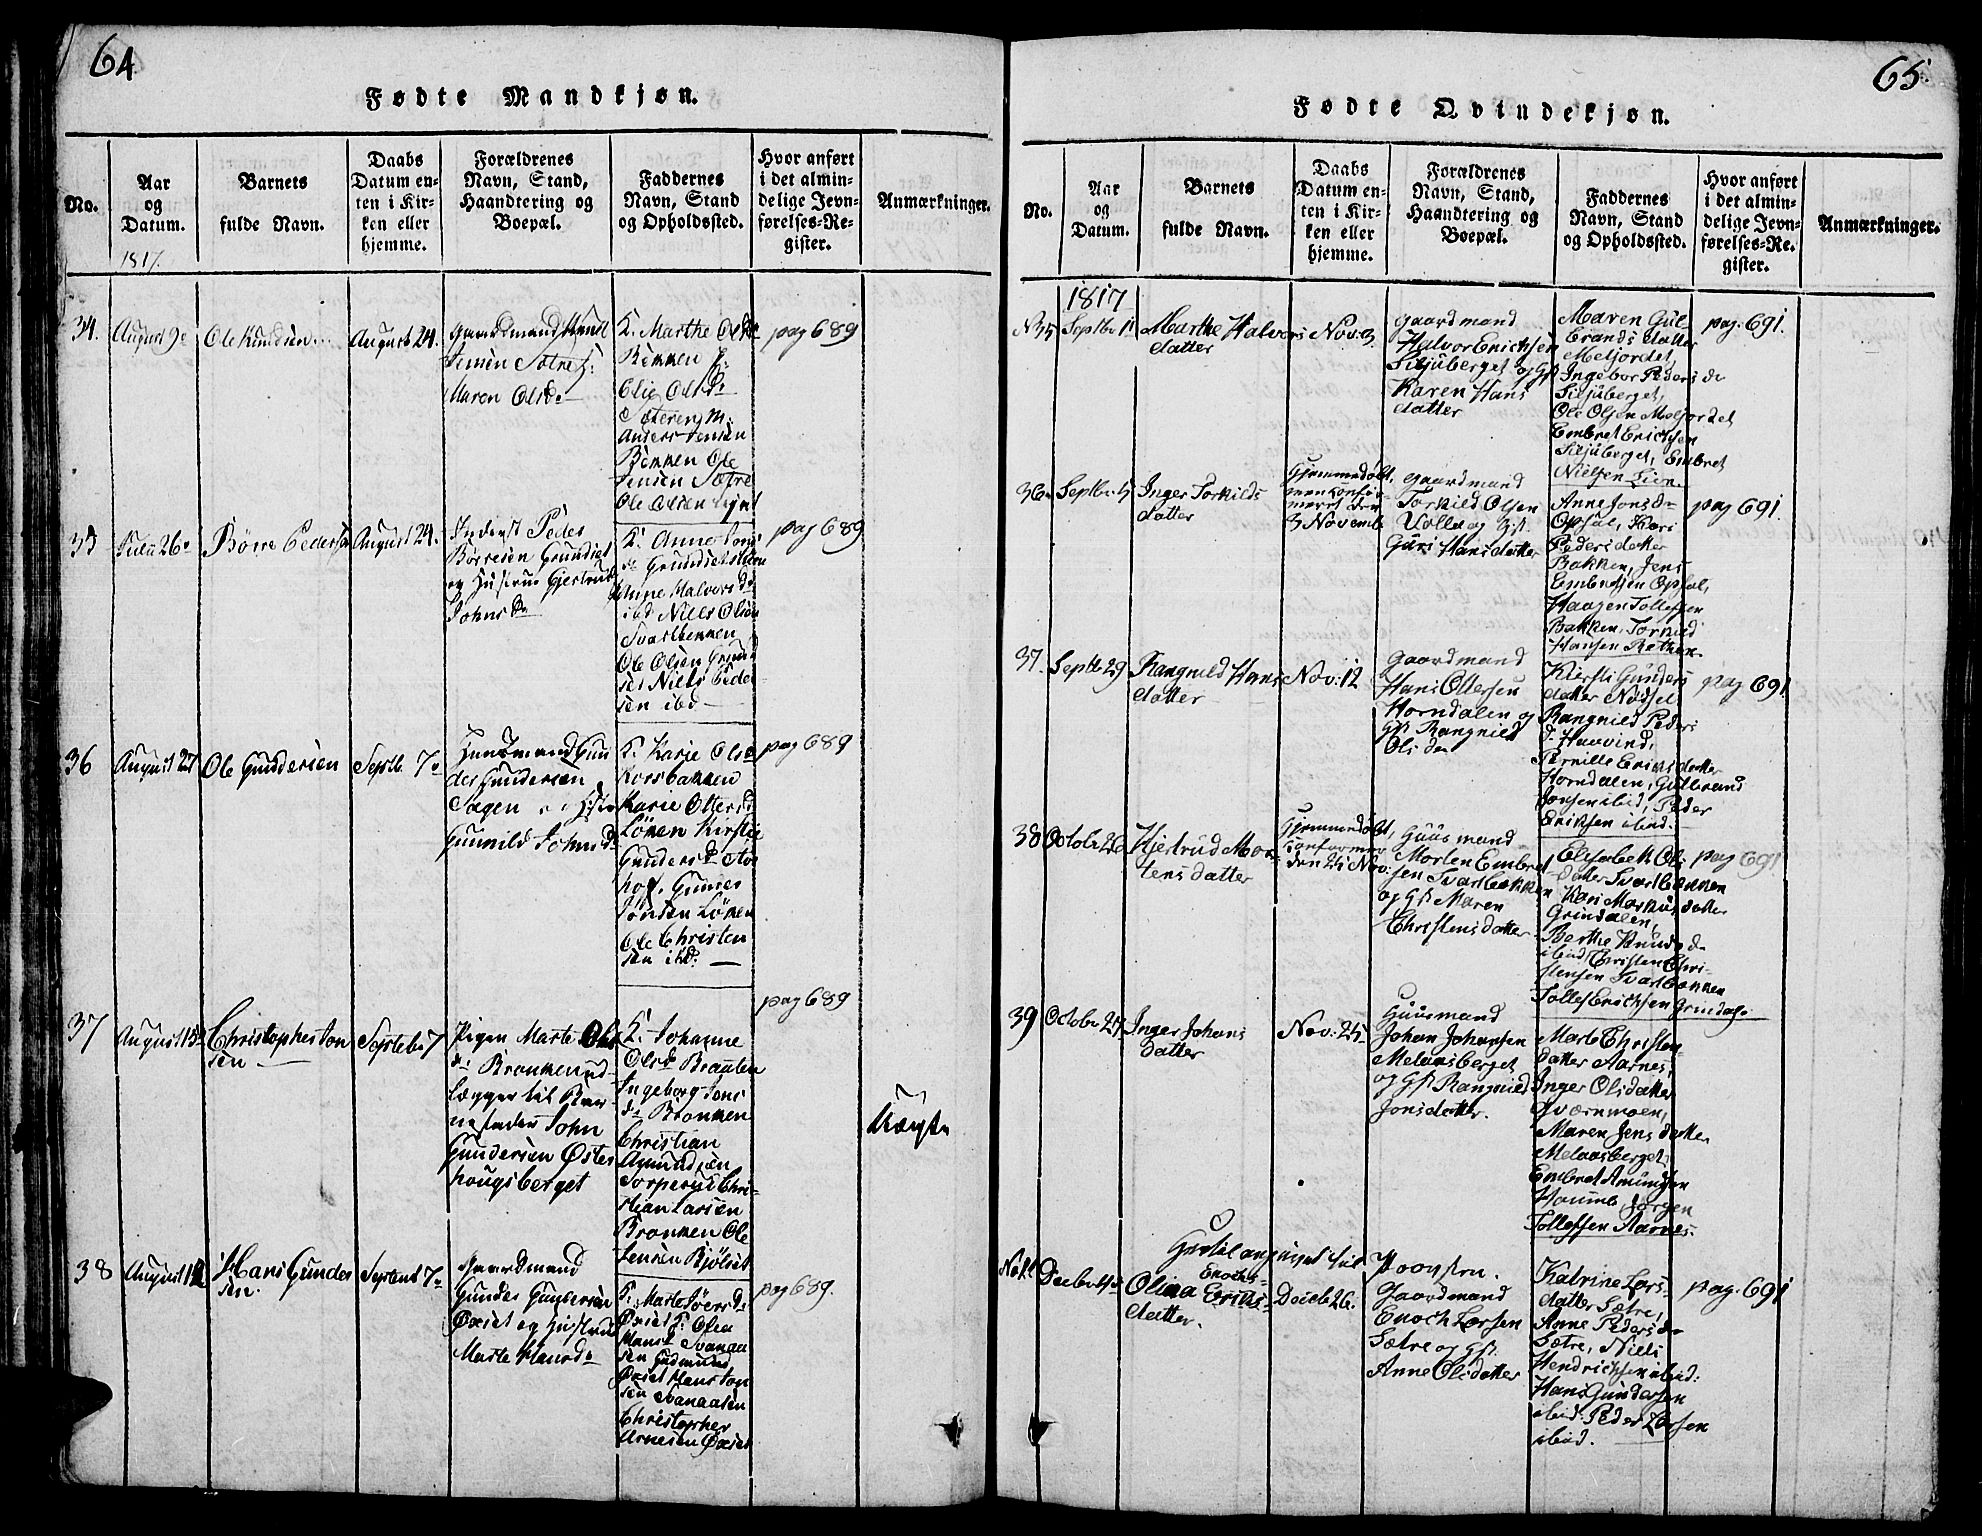 64
Fødte Mandkjøn.
No.
Aar
og
Datum.
Barnets
fulde Navn.
Daabs
Datum en-
ten i Kir-
ken eller
hjemme.
Forældrenes
Navn, Stand,
Haandtering og
Boepæl.
Faddernes
Navn, Stand
og Opholdssted.
Hvor anført
i det almin-
delige Jevn-
førelses-Re-
gister.
Anmærkninger.
1817.
34.
August 9
Ole Knudsen
August 24.
Gaardmand Knud
Jensen Sætre
Maren Olsd
K. Marthe Olsd
Bekken
Olie Olsd
Sæteren M:
Anders Jensen
Bekken Ole
Jensen Sætre
Ole Olsen
pag 689
35
Julii 26
Børre Peders
August 24.
Inderst Peder
Børresen Grundset
og Hustrue Gjertrud
Johns d
K. Anne Jons
d Grundset
Anne Halvors d
ibd Niels Olsen
Svartbekken
Ole Olsen Grund
set Niels Peder
sen ibd
pag 689
36
August 27
Ole Gundersen
Septb. 7
Huusmand Gun
der Gundersen
Sagen
Gunnild Johns d
K. Karje Olsd
Korsbakken
Karie Olters d
Løken Kirstie
Gunders d
Gunder
Jonsen Løken
Ole Christen
sen ibd.
pag 689
37
August 15
Christopher Jon
sen
Septebr 7
Pigen Marte Ols
d Brænken ud-
lægger til Bar
nefader John
Gundersen Øster
hougsberget
K. Johanne
Olsd Braaten
Ingeborg Jons
d Brænken
Christian
Amundsen
Torperud Chri-
stian Larsen
Brænken Ole
Jensen Bjølset
pag 689
Uægte
38
August 12
Hans Gunder
sen.
Septemb 7
Gaardmand
Gunder Gundersen
Øxset og Hustrue
Marte Hansd
K. Marte Joers d
Øxset K. Olea
Hansd Svenaa
sen Gudmund
Øxset Hans Jon
sen Svenaasen
Christopher
Arnesen Øxset
pag 689.
65.
Fødte Qvindekjøn.
No.
Aar
og
Datum.
Barnets
fulde Navn.
Daabs
Datum en-
ten i Kir-
ken eller
hjemme.
Forældrenes
Navn, Stand,
Haandtering og
Boepæl.
Faddernes
Navn, Stand
og Opholdssted.
Hvor anført
i det almin-
delige Jevn-
førelses-Re-
gister.
Anmærkninger.
1817
N 35
Septbr 11
Marthe Halvors
datter
Nov. 3
Gaardmand
Halvor Erichsen
Siljuberget og Gst
Karen Hans
datter
Maren Gul-
brands datter
Meljordet,
Ingebor Peders d
Siljuberget,
Ole Olsen Meljordet
Embret Erichsen
Siljuberget, Embret
Nielsen Lien.
pag. 691.
36
Septbr 5
Inger Torkilds
datter
Hjemmedøbt,
men konfir-
meret den
3 Novemb
Gaardmand
Torkild Olsen
Volla og Gst.
Guri Hansdatter
Anne Jons d
Opsal, Kari
Peders datter
Bakken, Jens
Embretsen Opsal,
Haagen Tollefsen
Bakken, Torkild
Hansen Rathen.
pag 691.
37.
Septb 29
Rangnild Hans
datter
Nov: 12
Gaardmand
Hans Ottersen
Horndalen og
Gst Rangnild
Ols d
Kiersti Gunders
datter Nødset
Rangnild Peders
d. Haavind,
Pernille Erichs datter
Horndalen, Gulbrand
Jonsen ibid, Peder
Eriksen ibid.
pag 691
38
Octobr 26
Hjertrud Mor-
tensdatter
Hjemmedøbt,
Konfirmer
den 25 Nov:
Huusmand
Morten Embret-
sen Svartbækken
og Gst Maren
Christensdatter
Elisabeth Ols
datter Svartbækken
Kari Markusdatter
Grindalen,
Berthe Knuds d
ibid, Christen Chri-
stensen Svartbækken
Tollef Erichsen Grindal
pag 691
39
Octobr 25
Inger Johans
datter
Nov: 25
Huusmand
Johan Johansen
Melaasberget
og Gst Rangnild
Jonsdatter.
Marte Christen-
datter Aarnes,
Inger Olsdatter
Sværnmoen,
Maren Jensdatter
Melaasberget,
Embret Amundsen
Jørgen
Tollefsen Aarnes.
Decbr 4
Olina
Enochs-
datter.
Deceb 26.
Gaardmand
Enoch Larsen
Sætre og Gst.
Anne Olsdatter
Katrine Lars-
datter Sætre,
Anne Peders d
Sætre, Niels
Hendrichsen ibid:
Hans Gundersen
ibid. Peder Larsen
ibid.
pag. 691